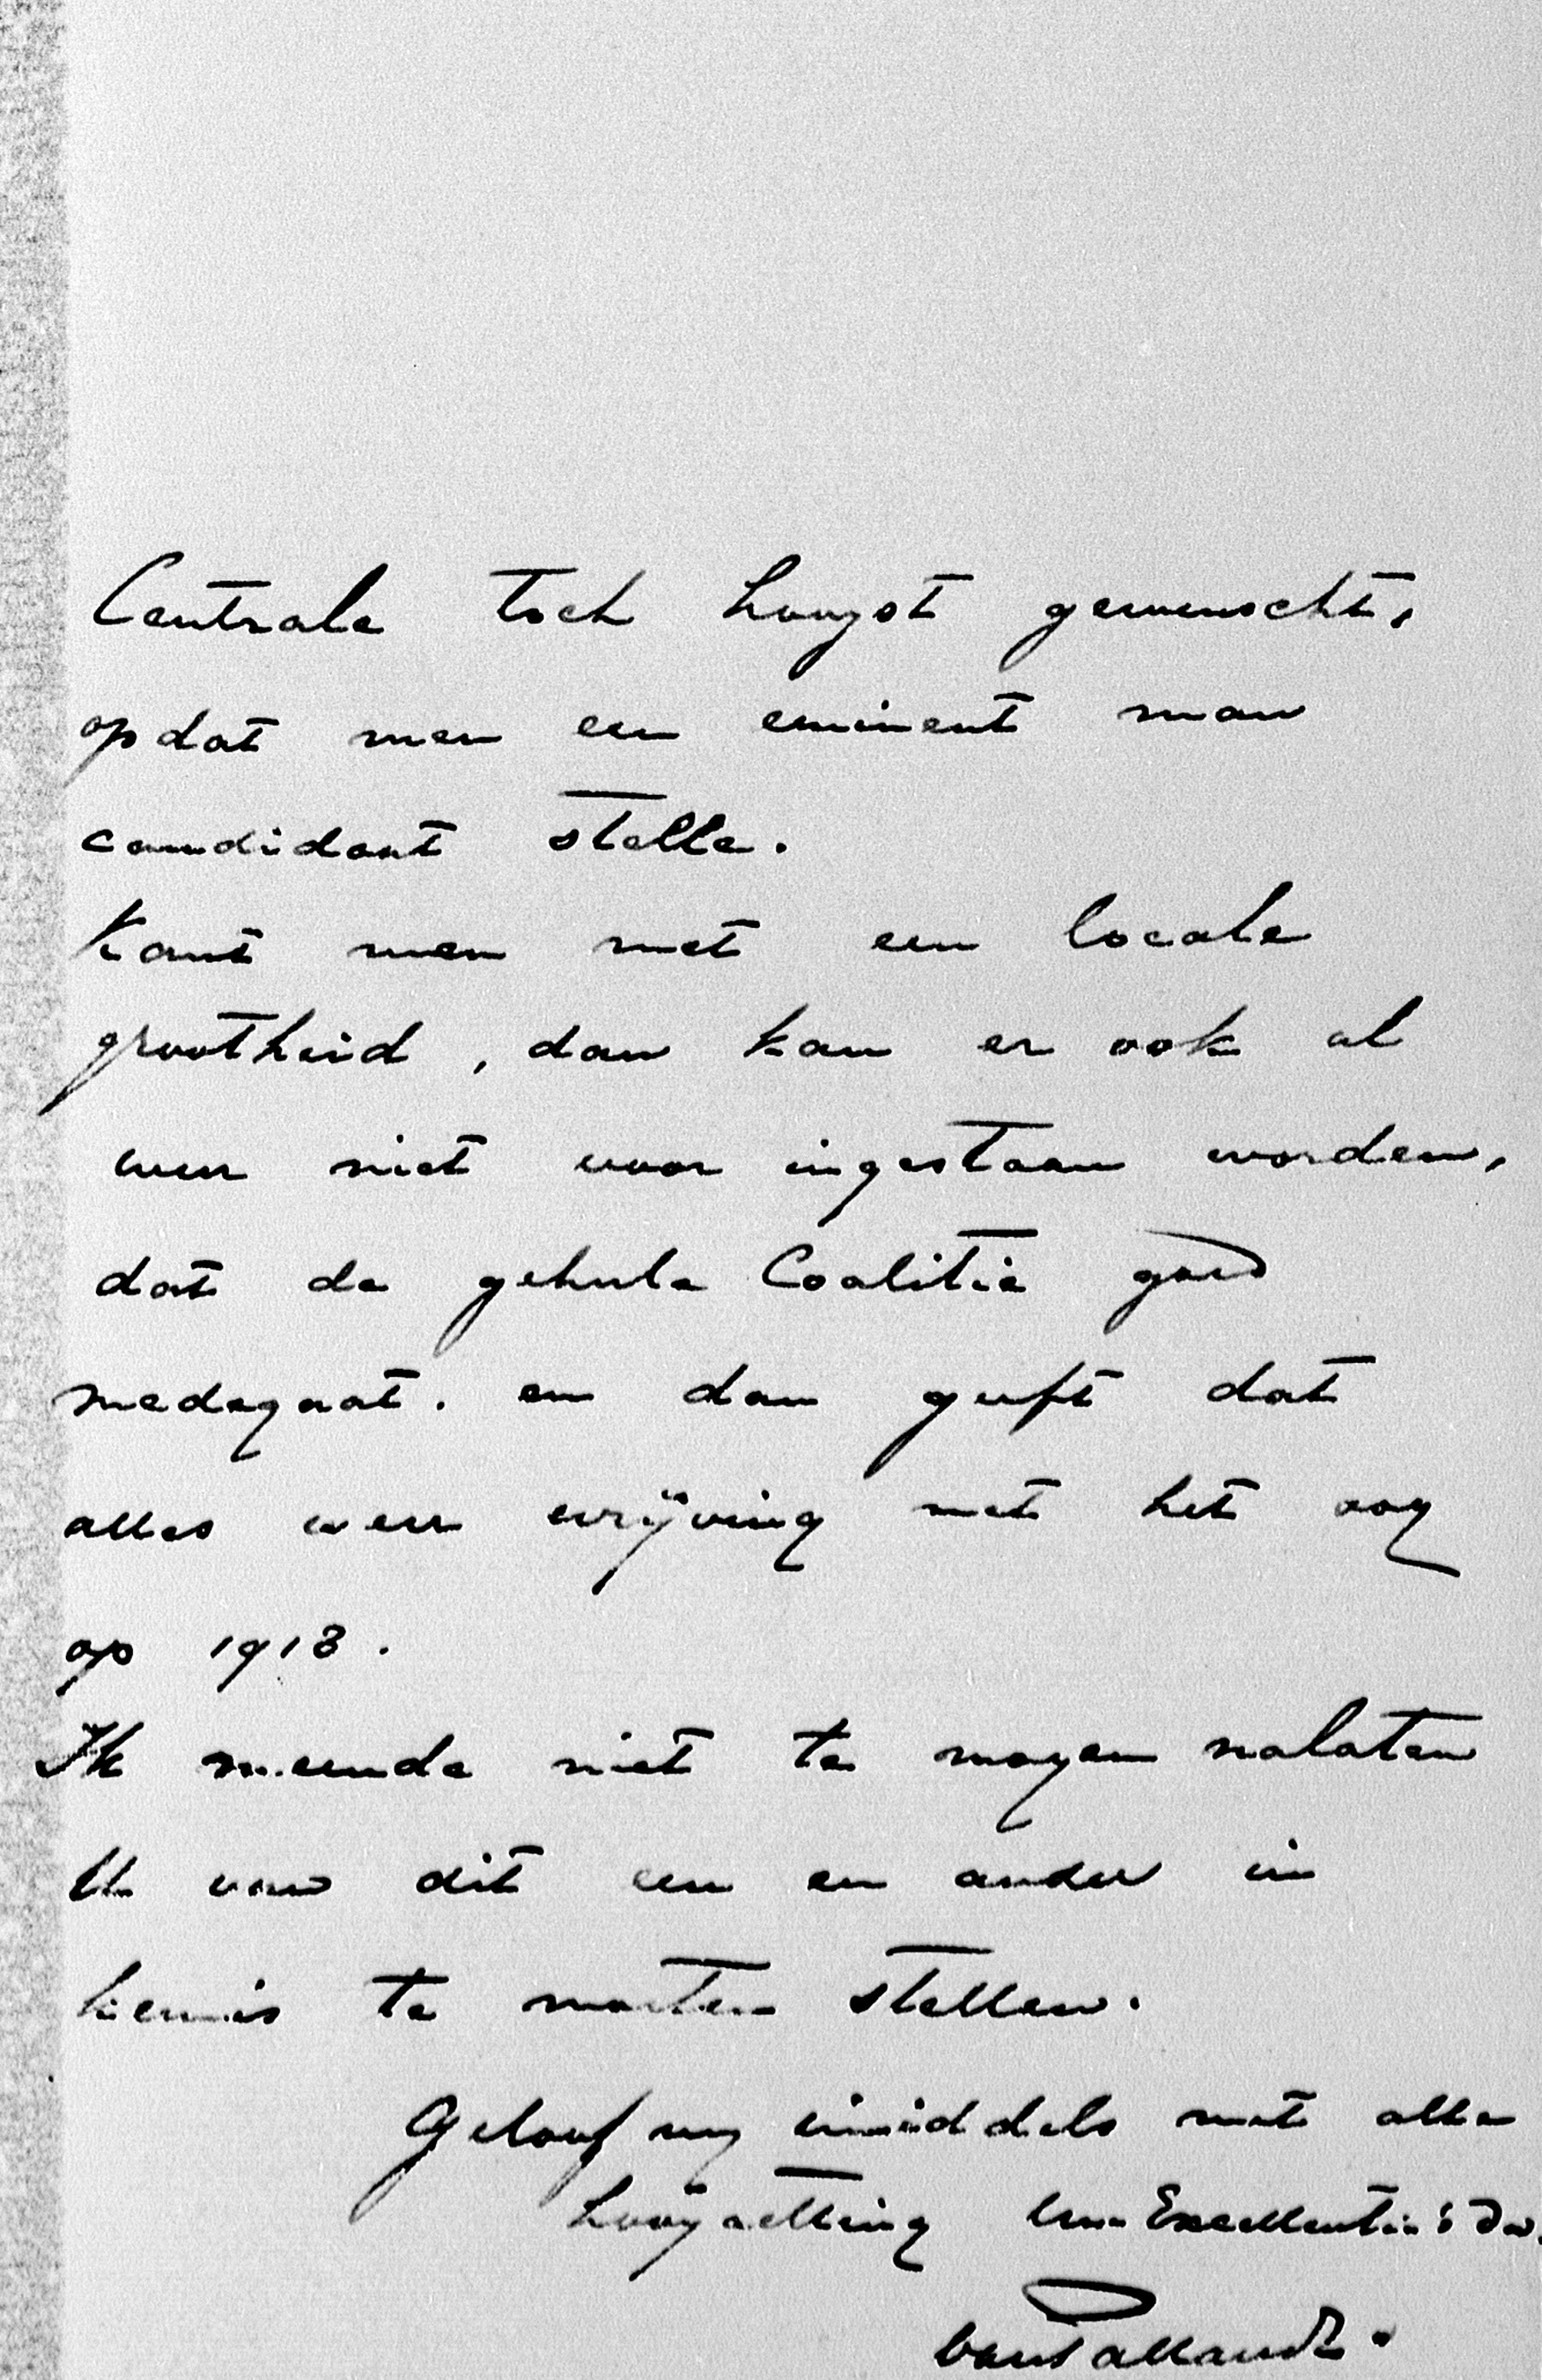 Centrale toch hoogst gewenscht,
opdat men een eminent man
candidaat stelle.
Komt men met een locale
grootheid, dan kan er ook al
weer niet voor ingestaan worden,
dat de geheele Coalitie goed
medegaat. en dan geeft dat
alles weer wrijving met het oog
op 1918.
Ik meende niet te mogen nalaten
U van dit een en ander in
kennis te moeten stellen.
Geloof mij inmiddels met alle
hoogachting Uwe Excellentie's Dw.
van Pallandt.